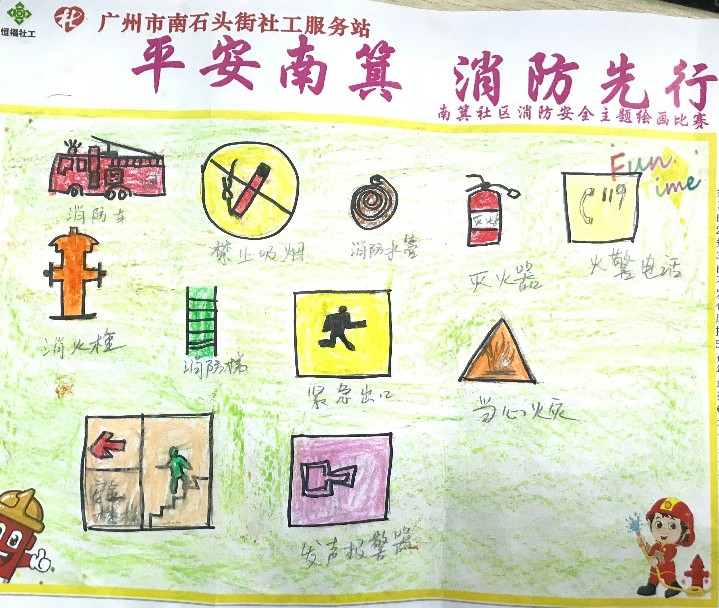 恒福社工
广州市南石头街社工服务站
平安南箕 消防先行
南箕社区消防安全主题绘画比赛
Fun
Time
119
消防车
禁止吸烟
消防水管
灭火
灭火器
火警电话
消火栓
消防梯
紧急出口
当心火灾
发声报警器